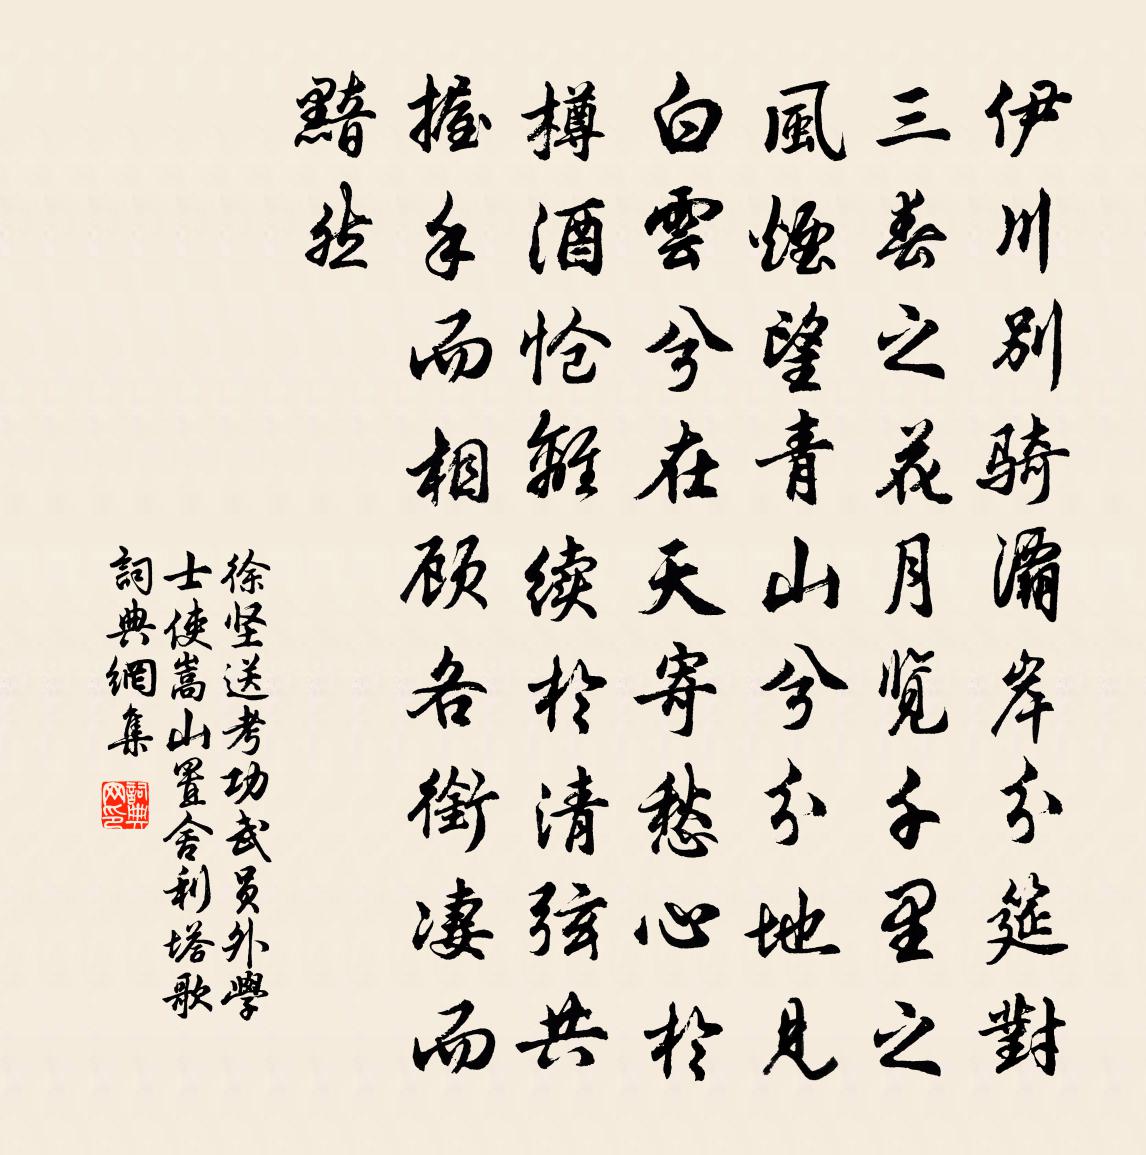 伊川别骑灞岸分筵對
三春之花月览千里之
風煙望青山兮分地見
白雲兮在天寄愁心於
樽酒怆離续於清弦共
握手而相顾各銜凄而
黯然
徐坚送考功武员外學
士使嵩山置舍利塔歌
詞典網集
詞典
网印